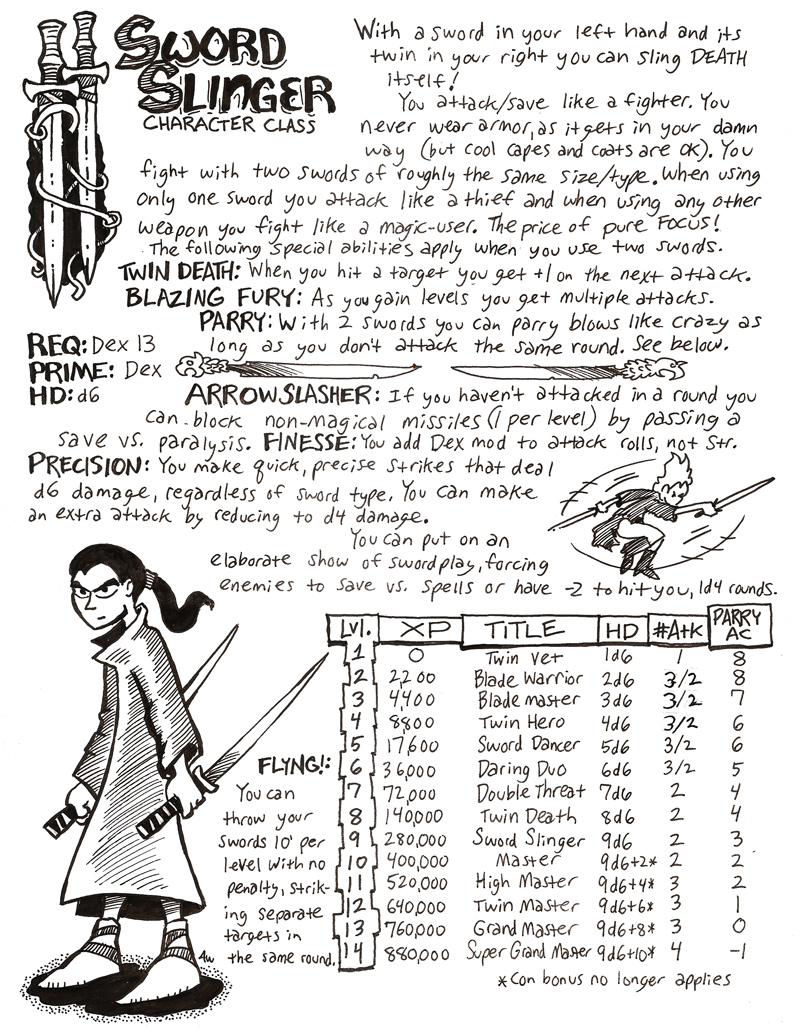 SWORD
SLINGER
CHARACTER CLASS
With a sword in your left hand and its
twin in your right you can sling DEATH
itself!
You attack/save like a fighter. You
never wear armor, as it gets in your damn
way (but cool capes and coats are OK). You
fight with two swords of roughly the same size/type. When using
only one sword you attack like a thief and when using any other
weapon you fight like a magic-user. The price of pure FOCUS!
The following special abilities apply when you use two swords.
TWIN DEATH: When you hit a target you get +1 on the next attack.
BLAZING FURY: As you gain levels you get multiple attacks.
PARRY: With 2 swords you can parry blows like crazy as
long as you don't attack the same round. See below.
REQ: Dex 13
PRIME: Dex
HD: d6
ARROWSLASHER: If you haven't attacked in a round you
can block non-magical missiles (1 per level) by passing a
save vs. paralysis. FINESSE: You add Dex mod to attack rolls, not Str.
PRECISION: You make quick, precise strikes that deal
d6 damage, regardless of sword type. You can make
an extra attack by reducing to d4 damage.
You can put on an
elaborate show of swordplay, forcing
enemies to save vs. spells or have -2 to hit you, 1d4 rounds.
FLYNG!:
You can
throw your
swords 10' per
level with no
penalty, strik-
ing separate
targets in
the same round.
AW
Lvl. XP TITLE HD #Atk PARRY AC
1 0 Twin Vet 1d6 1 8
2 2,200 Blade Warrior 2d6 3/2 8
3 4,400 Blade master 3d6 3/2 7
4 8,800 Twin Hero 4d6 3/2 6
5 17,600 Sword Dancer 5d6 3/2 6
6 36,000 Daring Duo 6d6 3/2 5
7 72,000 Double Threat 7d6 2 4
8 140,000 Twin Death 8d6 2 4
9 280,000 Sword Slinger 9d6 2 3
10 400,000 Master 9d6+2* 2 2
11 520,000 High Master 9d6+4* 3 2
12 640,000 Twin Master 9d6+6* 3 1
13 760,000 Grand Master 9d6+8* 3 0
14 880,000 Super Grand Master 9d6+10* 4 -1
*Con bonus no longer applies